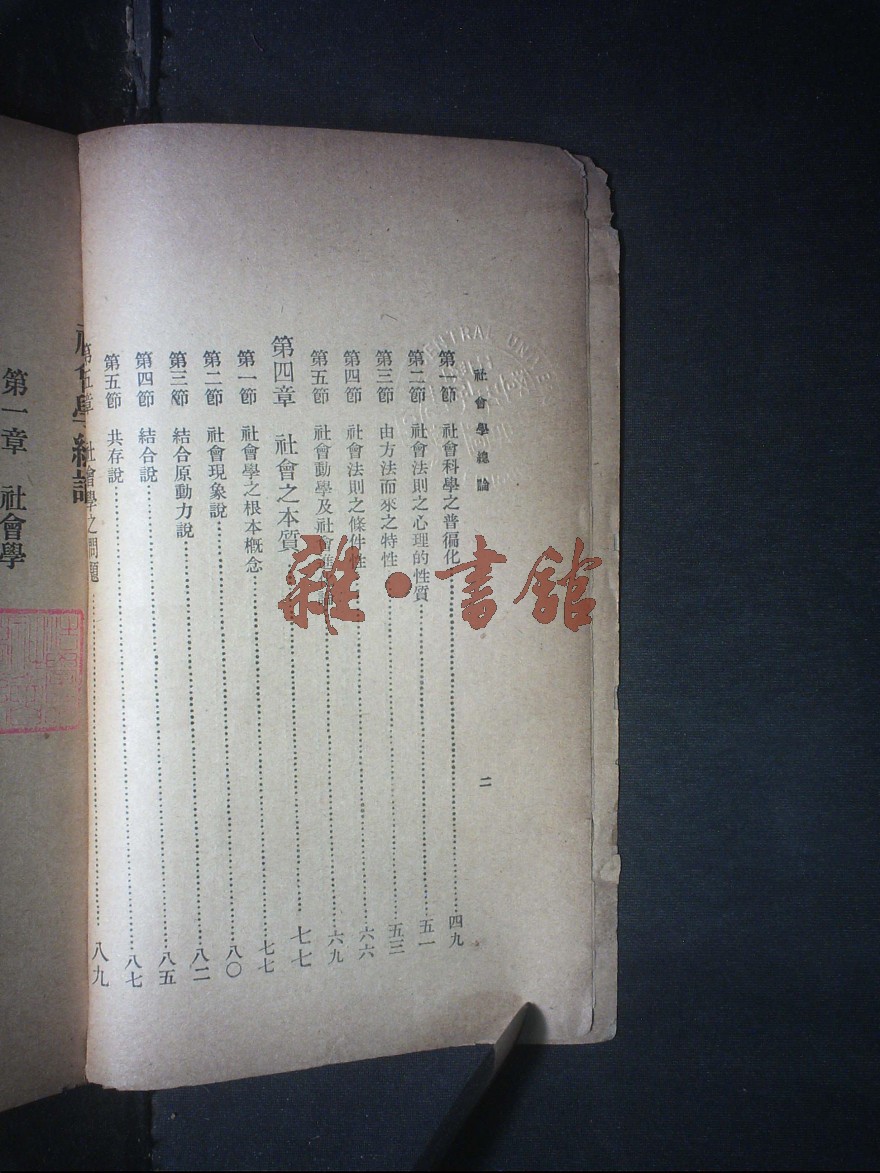 社會學總論
二
第一節 社會科學之普徧化……四九
第二節 社會法則之心理的性質……五一
第三節 由方法而來之特性……五三
第四節 社會法則之條件性……六六
第五節 社會動學及社會……六九
第四章 社會之本質……七七
第一節 社會學之根本概念……七七
第二節 社會現象說……八〇
第三節 結合原動力說……八二
第四節 結合說……八五
第五節 共存說……八七
第五章 社會學之問題……八九
社會學總論
第一章 社會學
雜·書館
CENTRAL UNIVE